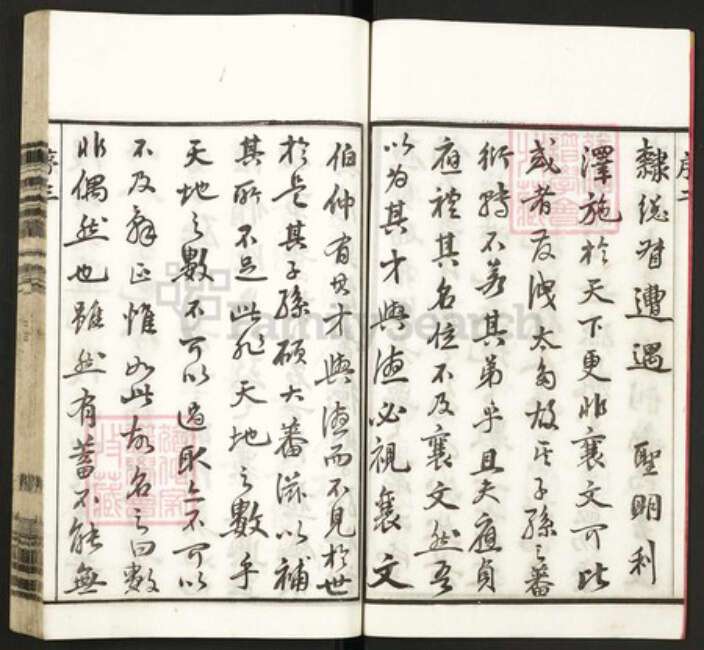 隸緃督遭遇 聖明利
澤施於天下更非襄文可比
或者發洩太多故其子孫之蕃
衍轉不若其弟乎且夫應貞
應禮其名位不及襄文然吾
以為其才與德必視襄文
伯仲有其才與德而不見於世
於是其子孫碩大蕃滋以補
其所不足此非天地之數乎
天地之數不可以過取亦不可以
不及辭正惟如此故名之曰數
非偶然也雖然有蓄不能無
序二
序三
FamilySearch